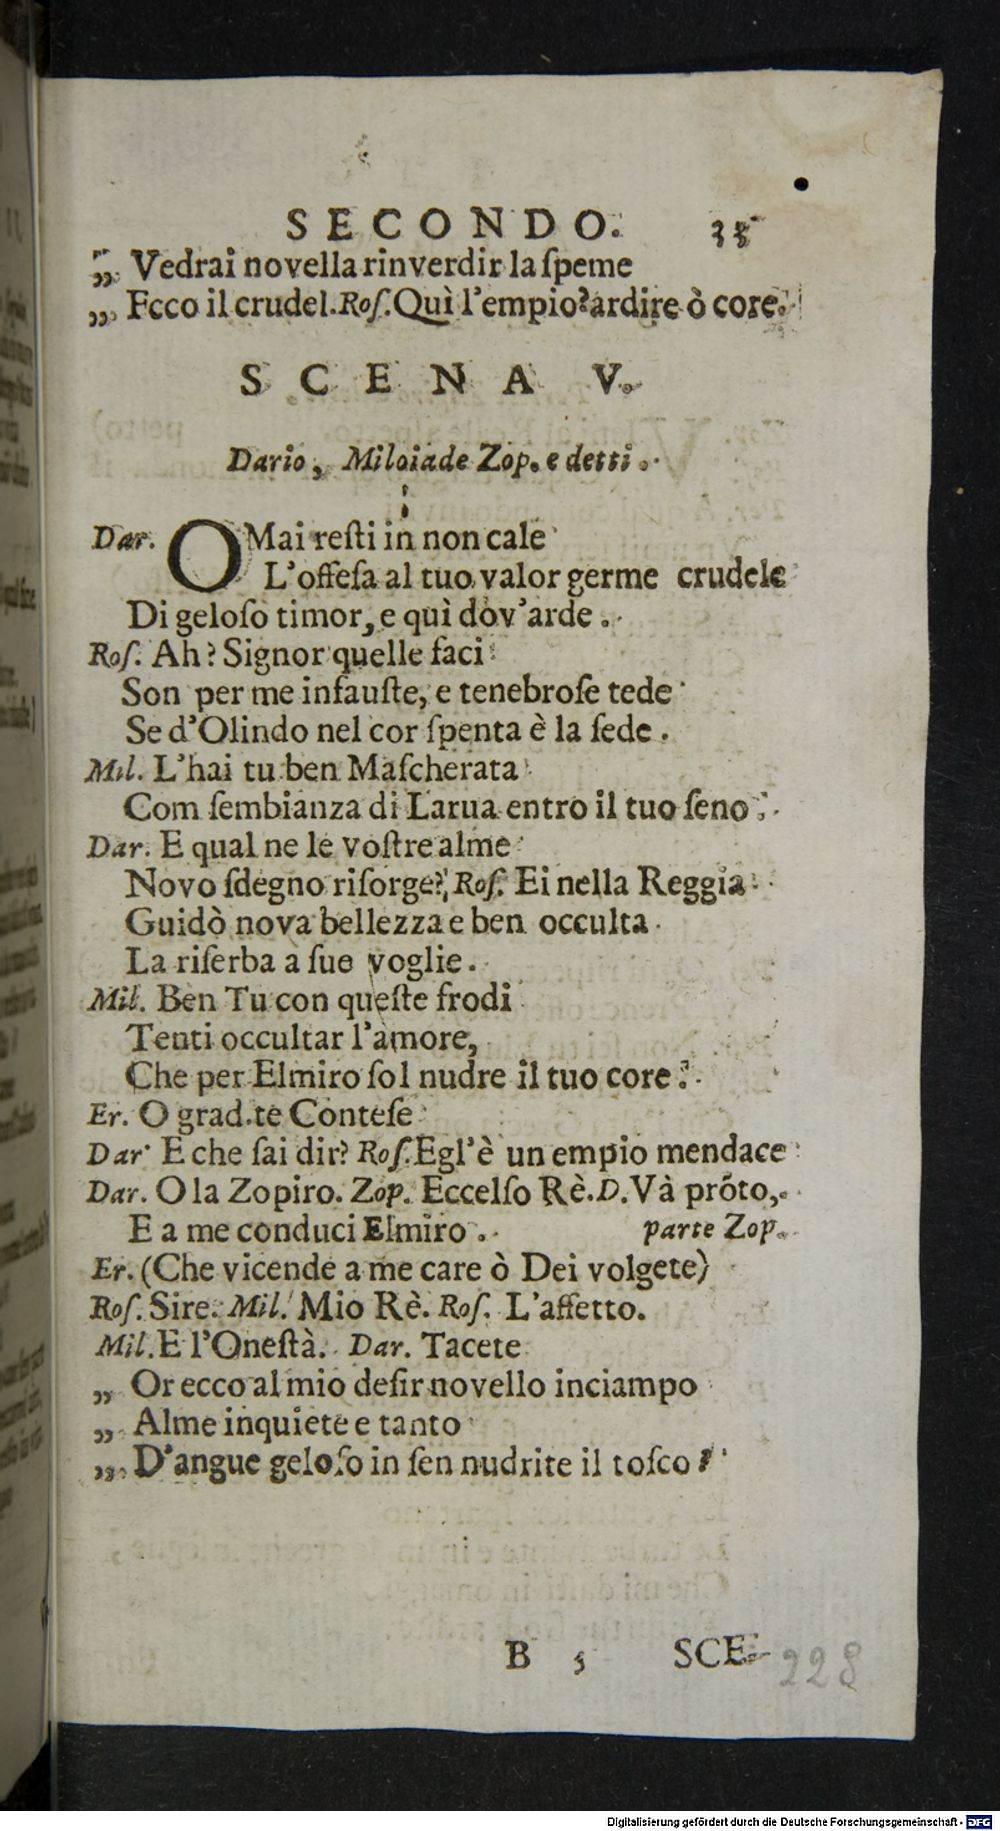 SECONDO. 33
„ Vedrai novella rinverdir la ſpeme
„ Ecco il crudel. Roſ. Quì l'empio? ardire ò core.
SCENA V.
Dario, Miloiade Zop. e detti.
Dar. OMai reſti in non cale
L'offeſa al tuo valor germe crudele
Di geloſo timor, e quì dov'arde.
Roſ. Ah? Signor quelle faci
Son per me infauſte, e tenebroſe tede
Se d'Olindo nel cor ſpenta è la fede.
Mil. L'hai tu ben Maſcherata
Com ſembianza di Larua entro il tuo ſeno.
Dar. E qual ne le voſtre alme
Novo ſdegno riſorge? Roſ. Ei nella Reggia
Guidò nova bellezza e ben occulta
La riſerba a ſue voglie.
Mil. Ben Tu con queſte frodi
Tenti occultar l'amore,
Che per Elmiro ſol nudre il tuo core.
Er. O grad.te Conteſe
Dar. E che ſai dir? Roſ. Egl'è un empio mendace
Dar. O la Zopiro. Zop. Eccelſo Rè. D. Và prõto,
E a me conduci Elmiro. parte Zop.
Er. (Che vicende a me care ò Dei volgete)
Roſ. Sire. Mil. Mio Rè. Roſ. L'affetto.
Mil. E l'Oneſtà. Dar. Tacete
„ Or ecco al mio deſir novello inciampo
„ Alme inquiete e tanto
„ D'angue geloſo in ſen nudrite il toſco?
B 5 SCE-
228
Digitalisierung gefördert durch die Deutsche Forschungsgemeinschaft - DFG